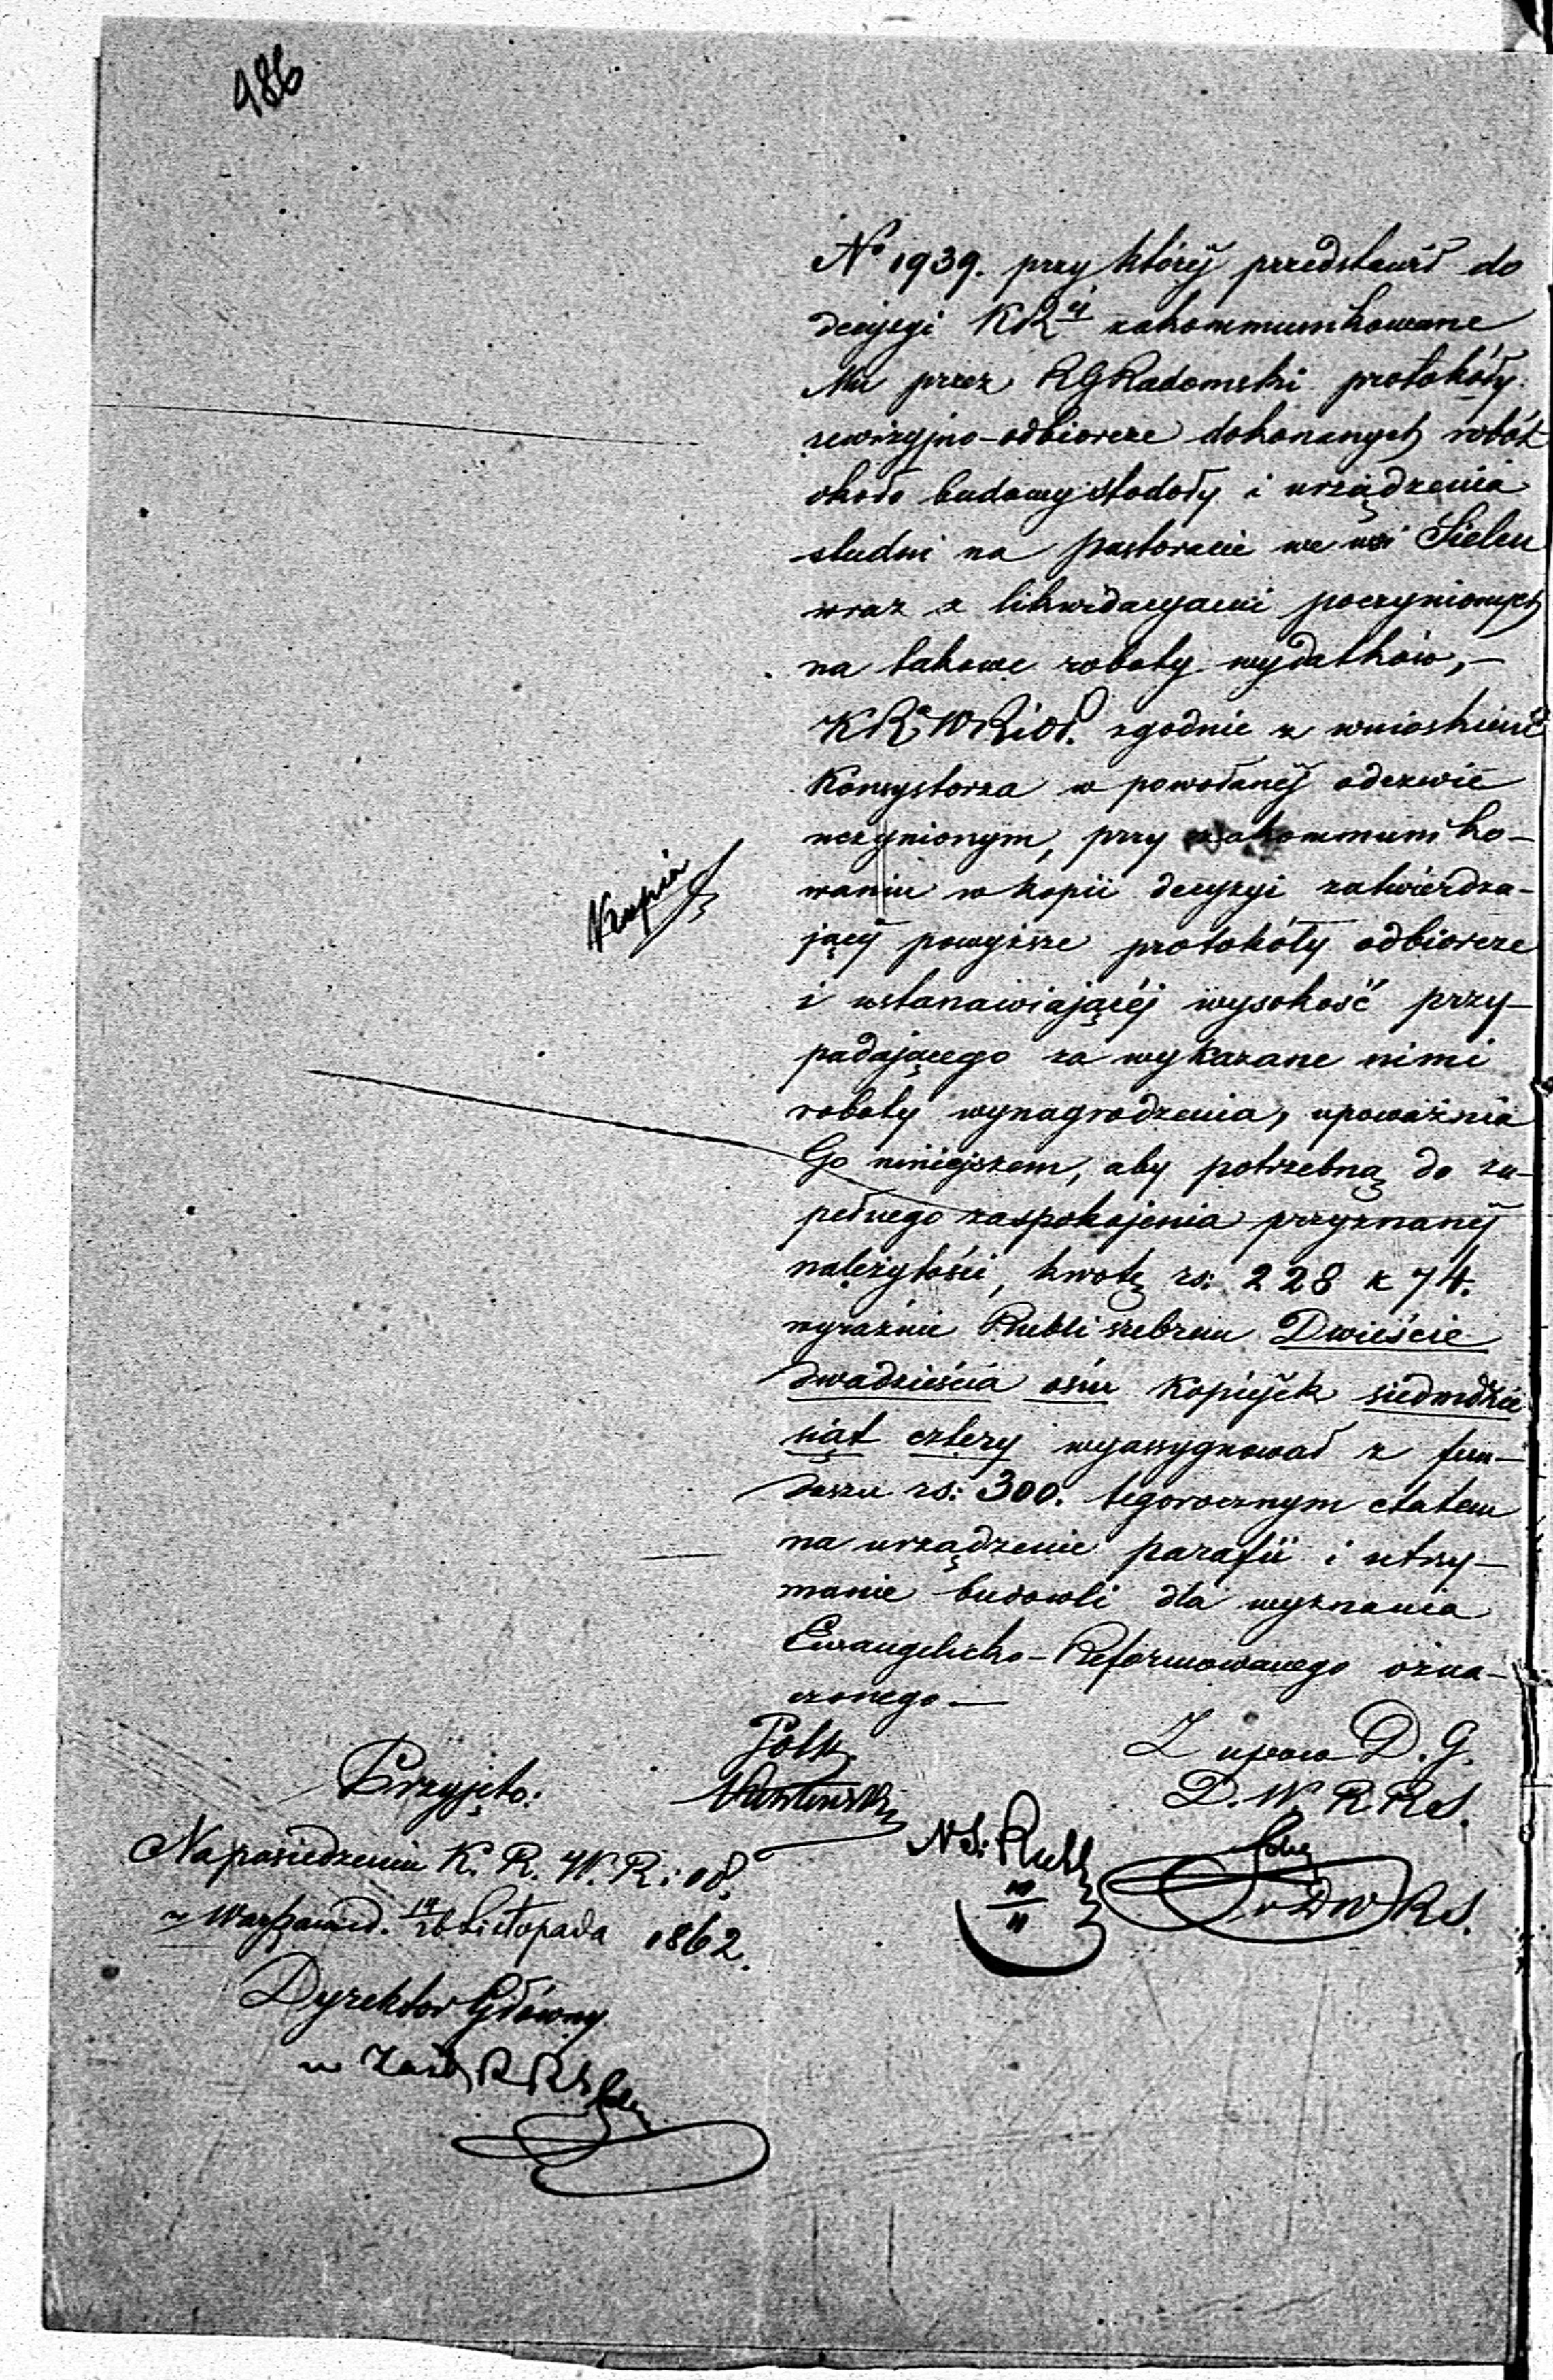 486
No 1939. przy któréj przedstawił do
decyzyi KRéj zakommunikowane
Mu przez RGRadomski protokóły
rewizyjno-odbiorcze dokonanych robót
około budowy stodoły i urządzenia
studni na pastoracie we wsi Sielcu
wraz z likwidacyami poczynionych
na takowe roboty wydatków, —
KRa WRiOP. zgodnie z wnioskiem
Konsystorza w powołanéj odezwie
uczynionym, przy zakommuniko-
waniu w kopii decyzyi zatwierdza-
jącéj powyższe protokóły odbiorcze
i ustanawiającéj wysokość przy-
padającego za wykazane nimi
roboty wynagrodzenia, upoważnia
Go niniejszem, aby potrzebną do zu-
pełnego zaspokojenia przyznanéj
należytości, kwotę rs: 228 k 74.
wyraźnie Rubli srebrem Dwieście
dwadzieścia ośm kopiejek siedmdzie
siąt cztery wyassygnował z fun-
duszu rs: 300. tegorocznym etatem
na urządzenie parafii i utrzy-
manie budowli dla wyznania
Ewangelicko-Reformowanego ozna-
czonego —
Z upow D. G.
D. W. R R S.
Przyjęto:
Na posiedzeniu K. R. W. R. i OP.
w Warszawie d. 14/26 Listopada 1862.
Dyrektor Główny